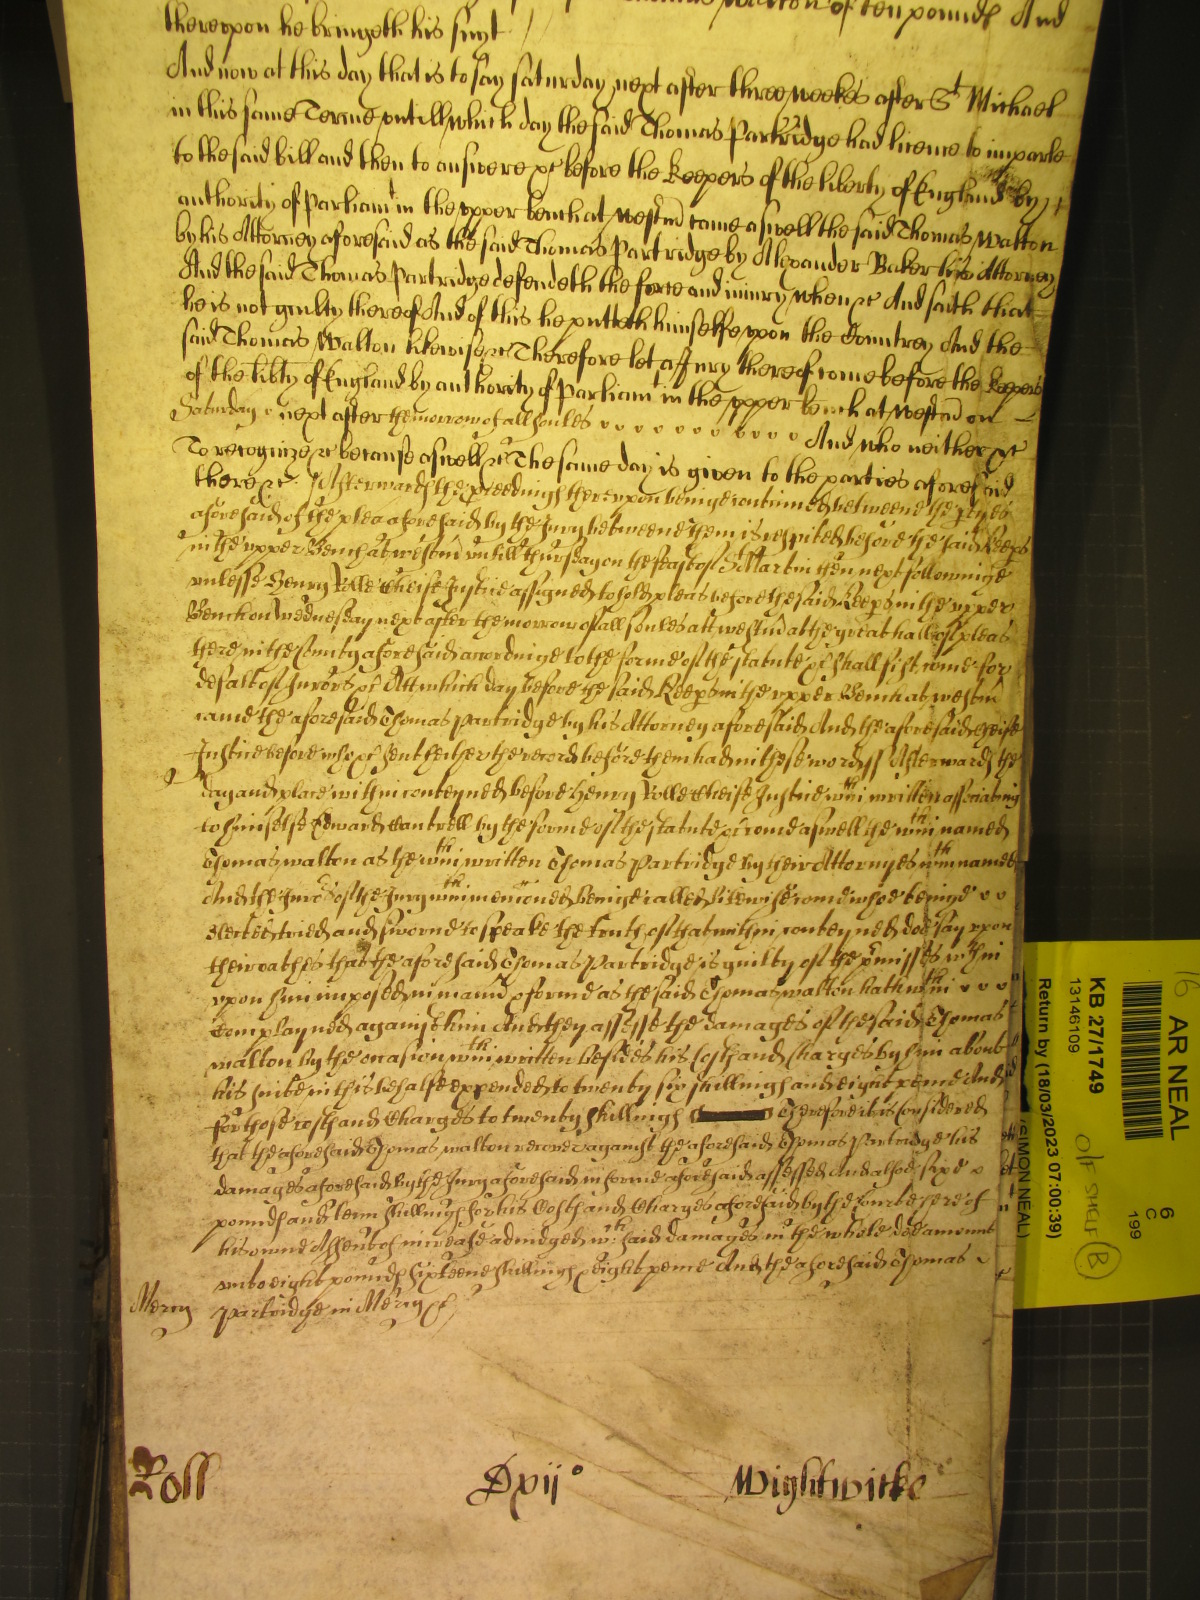 Walton of ten pounds And
thereupon he bringeth his suyt
And now at this day that is to say saturday next after three weekes after St Michael
in this same Terme untill which day the said Thomas Partridge had licence to imparle
to the said bill and then to answere &c before the keepers of the liberty of England by
authority of Parliamt in the upper bench at Westmr came aswell the said Thomas Walton
by his Attorney aforesaid as the said Thomas Partridge by Alexander Baker his Attorney
And the said Thomas Partridge defendeth the force and iniury when &c And saith that
he is not guilty thereof And of this he putteth himselfe upon the Countrey And the
said Thomas Walton likewise &c Therefore let a Jury thereof come before the keepers
of the libty of England by authority of Parliamt in the upper bench at Westmr on
Saturday next after the morrow of all soules And who neither &c
To recognize &c because aswell &c The same day is given to the parties aforesaid
there &c Afterwards the pceedings thereupon beinge continued betweene the pties
aforesaid of the plea aforesaid by the Jury betweene them is respited before the said Keeps
in the upper Bench at westmr untill thursday on the feast of St Martin then next followinge
unlesse Henry Rolle Cheife Justice assigned to hold pleas before the said Keeps in the upper
Bench on Wednesday next after the morrow of all soules att westmr at the great hall of pleas
there in the County aforesaid accordinge to the forme of the statute &c shall first come for
default of Jurors &c Att which day before the said Keeps in the upper Bench at westmr
came the aforesaid Thomas Partridge by his Attorney aforesaid And the aforesaid cheife
Justice before who &c sent hether the record before them had in these words ss Afterwards the
day and place within conteyned before Henry Rolle Cheife Justice wthin written associating
to himselfe Edward Cantrell by the forme of the statute &c come aswell the wthin named
Thomas walton as the wthin written Thomas Partridge by their Attornyes wthin named
And the Jurors of the Jury wthin mencioned beinge called likewise come whoe beinge
elected tried and sworne to speake the truth of that within conteyned doe say upon
their oathes that the aforesaid Thomas Partridge is guilty of the pmisses wthin
upon him imposed in mannr & forme as the said Thomas walton hath wthin
Complayned against him And they assesse the damages of the said Thomas
walton by the occasion wthin written besides his Costs and Charges by him about
his suite in this behalfe expended to twenty six shillings and eight pence And
for those costs and Charges to twenty shillings Therefore it is Considered
that the aforesaid Thomas walton recover against the aforesaid Thomas Partridge his
damages aforesaid by the Jury aforesaid in forme aforesaid assessed And alsoe sixe
pounds and tenn shillings for his Costs and Charges aforesaid by the Courte here of
his owne Assent of increase adiudged wch said damages in the whole doe amount
unto eight pounds sixteene shillings & eight pence And the aforesaid Thomas
Mercy Partridge in Mercy &c
Roll Dxijo Wightwicke
16 AR NEAL
6
C
199
KB 27/1749
13146109
O/F SHELF B
Return by (18/03/2023 07:00:39)
(SIMON NEAL)